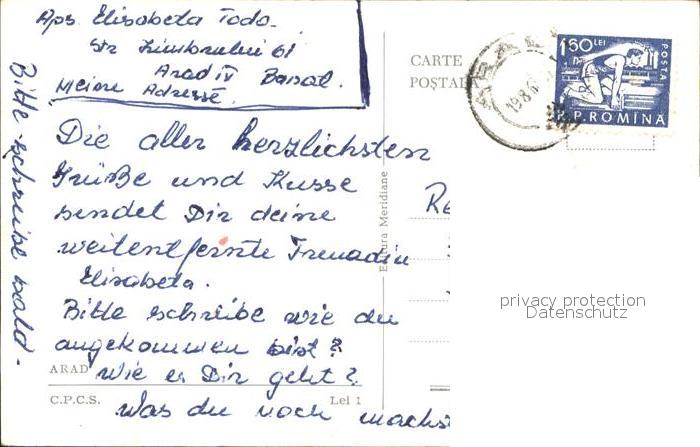 Aps. Elisabeta Todo.
Str Zimbrului 61
Arad IV Banat.
Meine Adresse.
CARTE
POȘTAL
1,60 LEI
POSTA
R.P.ROMINA
ARAD
19.8.6
Bitte schreibe bald.
Die aller herzlichsten
Grüße und Kusse
sendet Dir deine
weitentfernte Freundin
Elisabeta.
Bitte schreibe wie du
angekommen bist?
Wie es Dir geht?
Was du noch machst
Editura Meridiane
Re
privacy protection
Datenschutz
ARAD
C.P.C.S.
Lei 1